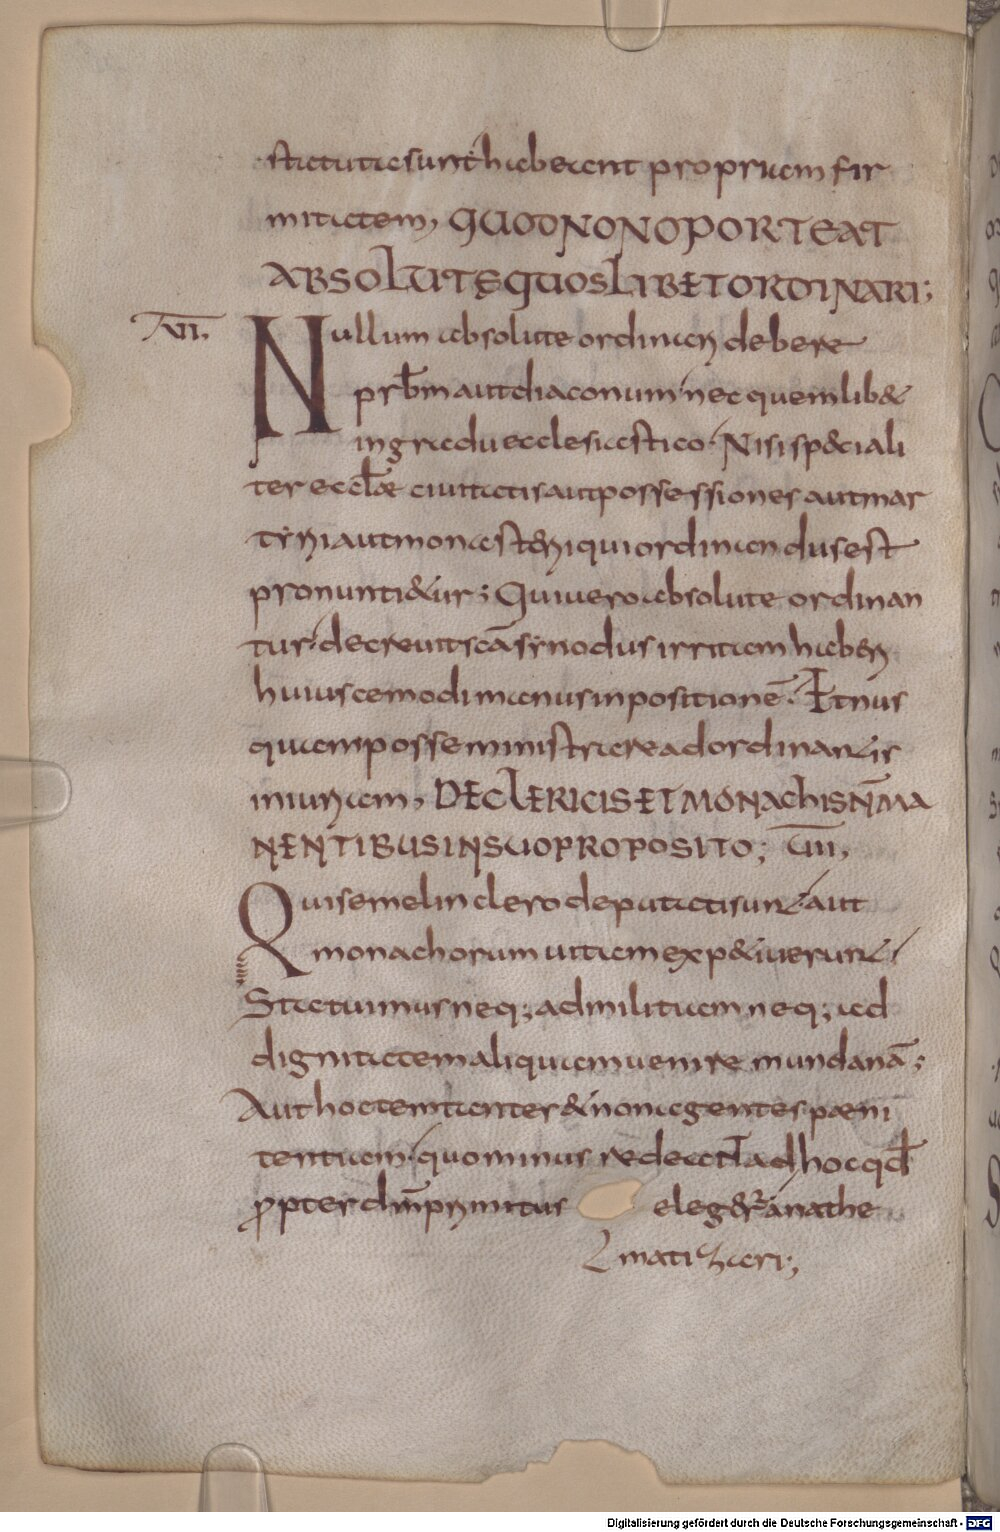 stituta sunt habeant propriam fir
mitatem, QUOD NON OPORTEAT
ABSOLUTE QUOSLIBET ORDINARI;
VI. Nullum absolute ordinari debere
prbm aut diaconum nec quemlib&
in gradu ecclesiastico. Nisi sp&iali
ter eccl̄ae ciuitatis aut possessiones aut mar
tyrii aut monasterii qui ordinandus est
pronunti&ur; Qui uero absolute ordinan
tur. decreuit scā synodus irritam haberi
huiuscemodi manus inpositionē. Et nus
quam posse ministrare ad ordinantis
iniuriam, DE CLERICIS ET MONACHIS N̄ MA
NENTIBUS IN SUO PROPOSITO; VII,
Qui semel in clero deputati sunt aut
monachorum uitam exp&iuerunt
Statuimus neq; ad militiam neq; ad
dignitatem aliquam uenire mundanā;
Aut hoc temtantes & non agentes paeni
tentiam. quominus redeant ad hoc qđ
propter dm̄ primitus eleger̄ anathe
matizari;
Digitalisierung gefördert durch die Deutsche Forschungsgemeinschaft - DFG